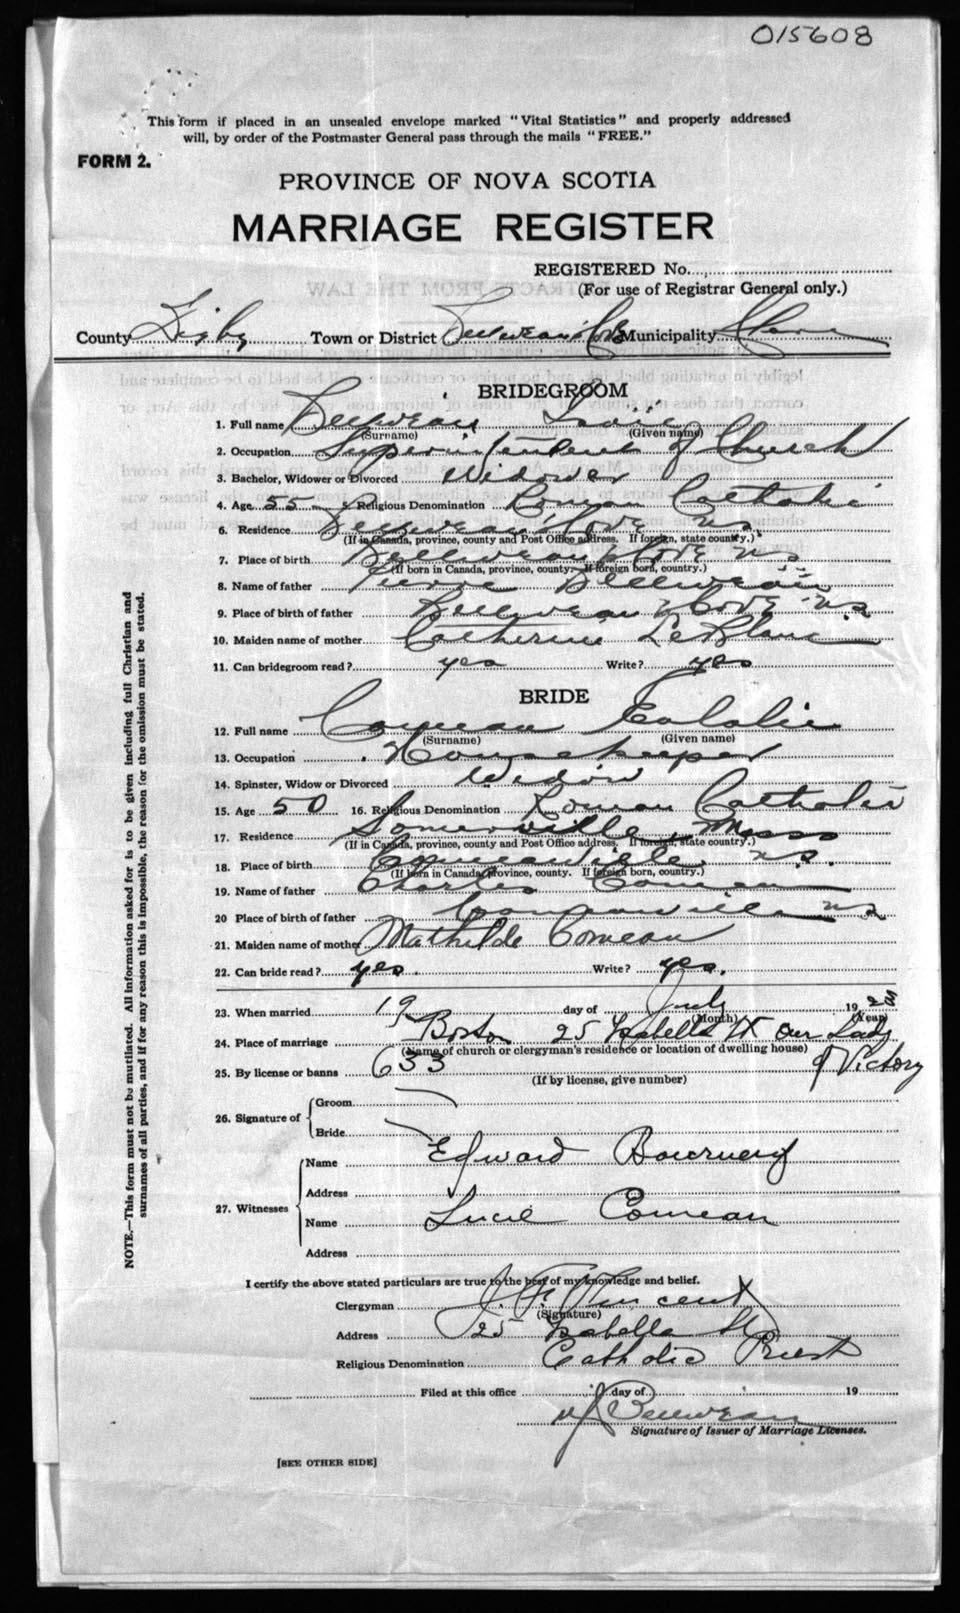 015608
This form if placed in an unsealed envelope marked "Vital Statistics" and properly addressed
will, by order of the Postmaster General pass through the mails "FREE."
FORM 2.
PROVINCE OF NOVA SCOTIA
MARRIAGE REGISTER
REGISTERED No.
(For use of Registrar General only.)
County Digby Town or District Belliveau's Cove Municipality Clare
BRIDEGROOM
1. Full name Belliveau Louis
(Surname) (Given name)
2. Occupation Superintendent of Church
3. Bachelor, Widower or Divorced Widower
4. Age 55 5. Religious Denomination Roman Catholic
6. Residence Belliveau's Cove N.S.
(If in Canada, province, county and Post Office address. If foreign, state country.)
7. Place of birth Belliveau's Cove N.S.
(If born in Canada, province, county. If foreign born, country.)
8. Name of father Pierre Belliveau
9. Place of birth of father Belliveau's Cove N.S.
10. Maiden name of mother Catherine LeBlanc
11. Can bridegroom read? yes Write? yes
BRIDE
12. Full name Comeau Eulalie
(Surname) (Given name)
13. Occupation Housekeeper
14. Spinster, Widow or Divorced Widow
15. Age 50 16. Religious Denomination Roman Catholic
17. Residence Somerville, Mass
(If in Canada, province, county and Post Office address. If foreign, state country.)
18. Place of birth Comeauville, N.S.
(If born in Canada, province, county. If foreign born, country.)
19. Name of father Charles Comeau
20 Place of birth of father Comeauville N.S.
21. Maiden name of mother Mathilde Comeau
22. Can bride read? yes. Write? yes.
23. When married 19 day of July 1923
(Month) (Year)
24. Place of marriage Boston 25 Isabella St Our Lady
(Name of church or clergyman's residence or location of dwelling house) of Victory
25. By license or banns 633
(If by license, give number)
26. Signature of
Groom
Bride
27. Witnesses
Name Edward
Address
Name Lucie Comeau
Address
I certify the above stated particulars are true to the best of my knowledge and belief.
Clergyman J. F. Vincent
(Signature)
Address 25 Isabella St
Religious Denomination Catholic Priest
Filed at this office day of 19
Belliveau
Signature of Issuer of Marriage Licenses.
[SEE OTHER SIDE]
NOTE.—This form must not be mutilated. All information asked for is to be given including full Christian and
surnames of all parties, and if for any reason this is impossible, the reason for the omission must be stated.